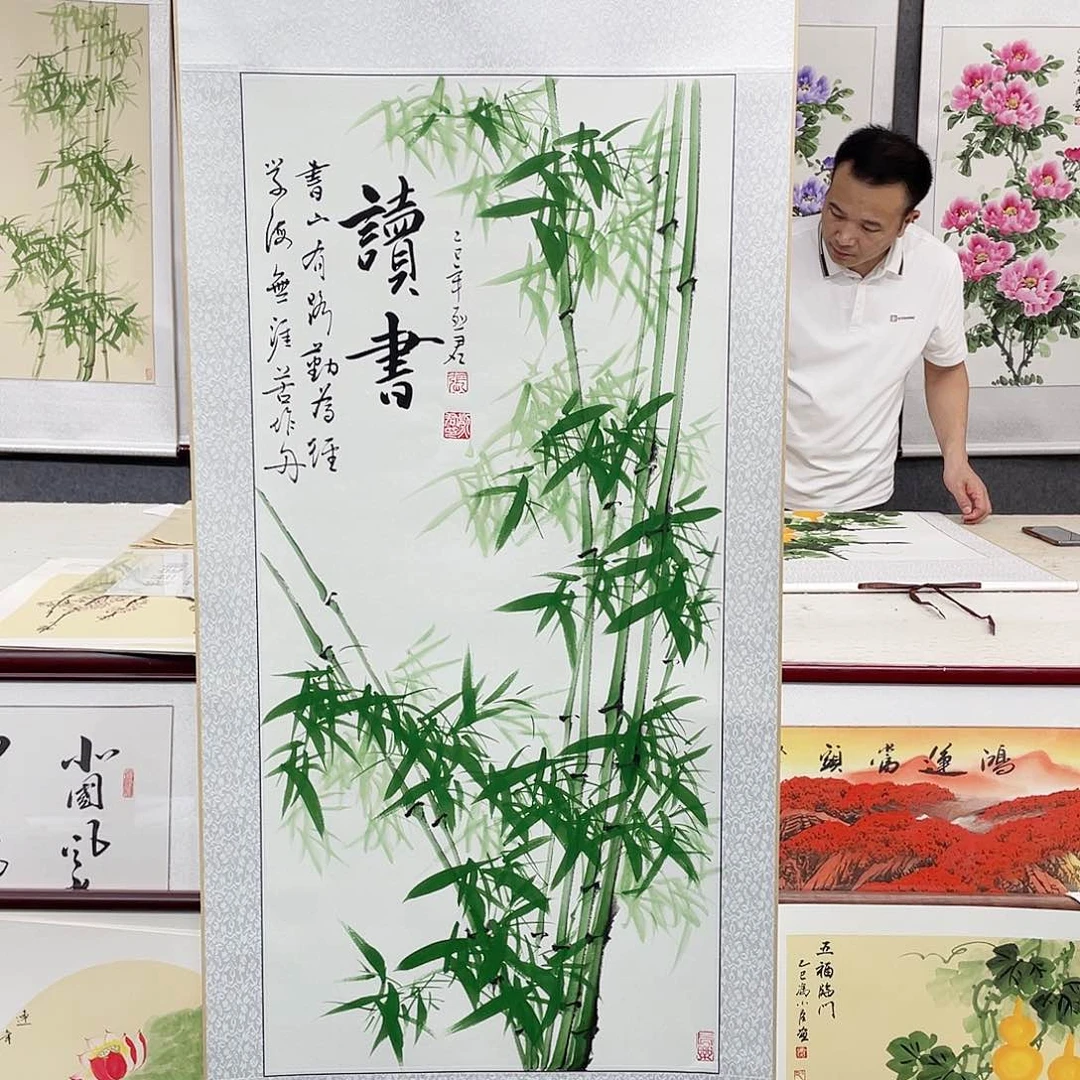 讀書
書山有路勤為徑
学海無涯苦作舟
乙巳年君
鴻運當頭
北國风
五福臨門
乙巳馮小